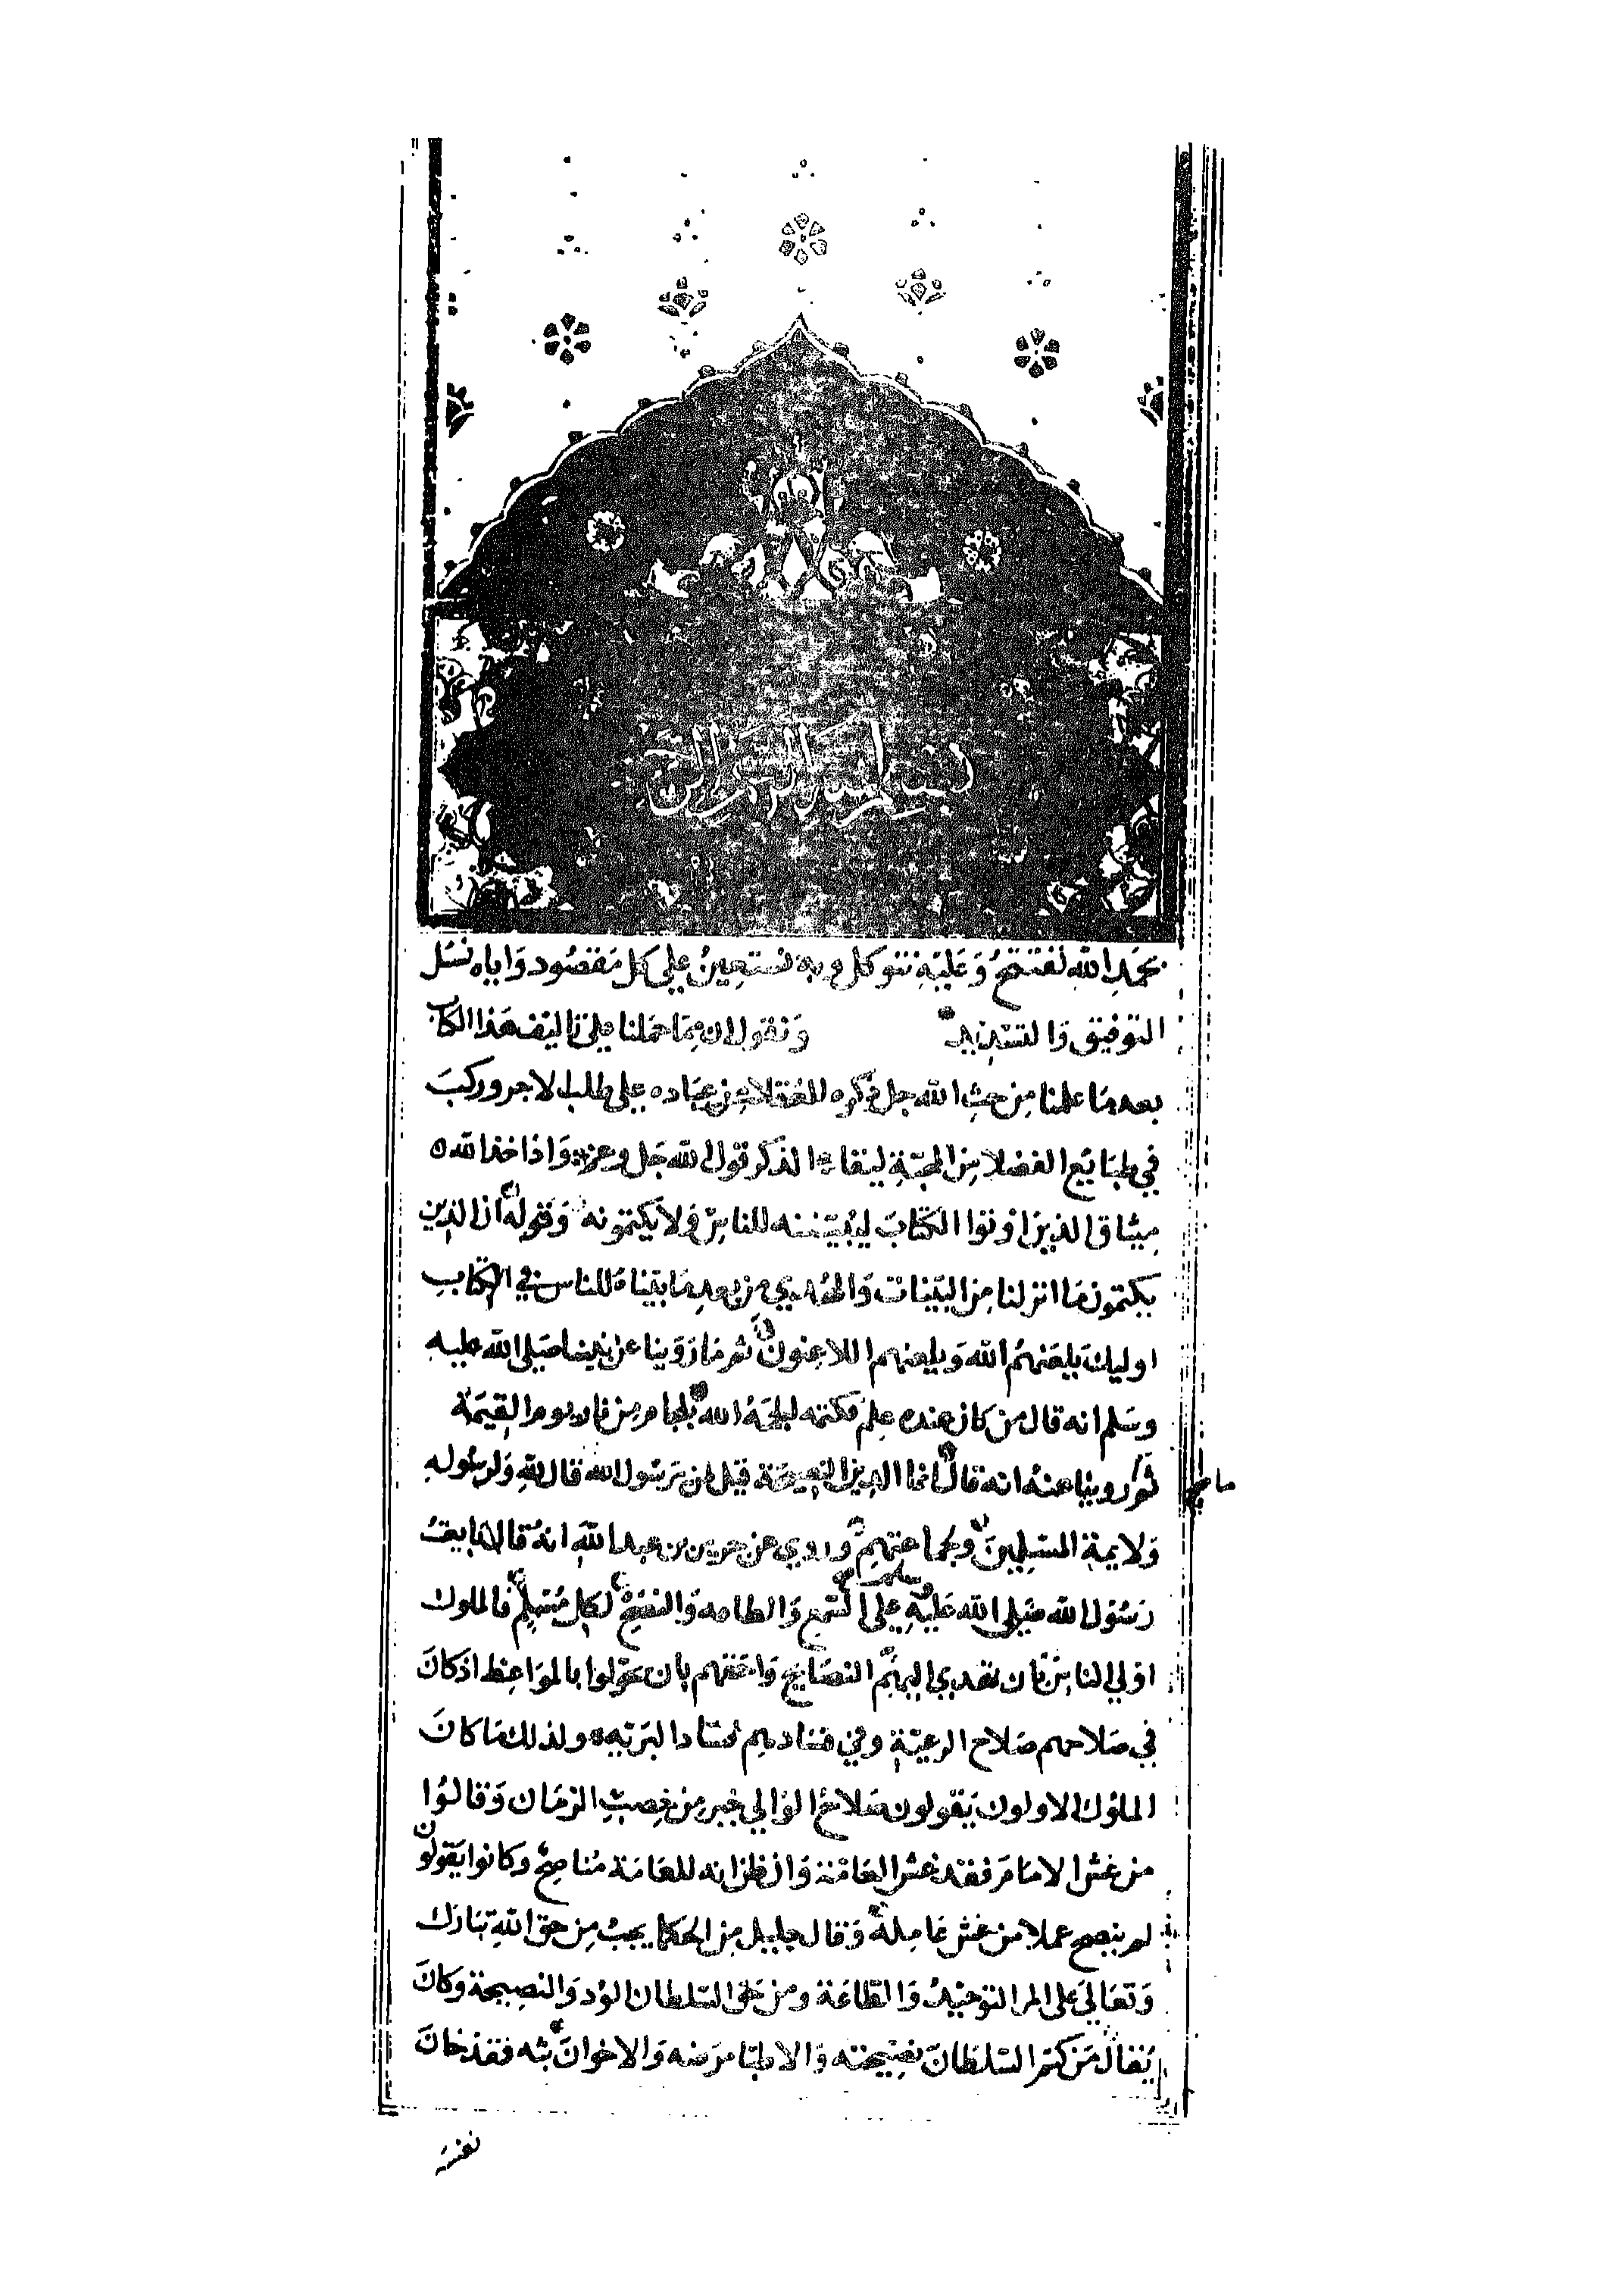 بسم الله الرحمن الرحيم
بحمد الله نفتتح وَعَليْهِ نتوكل وبه نستعينُ على كل مَقصُود وَاياه نسَل
التوفيق وَالتسَديد وَنقول ان مما حملنا على تاليف هَذا الكتاب
بعد مَا علمنا مِن حثِ الله جل ذكره للعُقلاء مِن عبَاده على طلب الاجر وركبَ
في طبَايع الفضلاء مِن المحبّةِ لبقاء الذكر قول الله جَل وعز وَاذا خذ الله
ميثاق الذين اوتوا الكتابَ ليُبيننه للناسِ وَلا يكتمونه وَقوله ان الذين
يكتمون مَا انزلنا مِن البيّنات وَالهُدي من بعدِ مَا بيّناهُ للناس في الكتابِ
اوليك يلعَنهمُ الله وَيلعنهم اللاعِنون ثم مَا رَوَينا عن نبينا صَلى الله عليه
وسَلم انه قال من كان عنده عِلم فكتمه لجمَهُ الله بلجام مِن نار يوم القِيمَة
ثم روينا عنهُ انه قال انما الدين النصيحَة قيل لمن يَرسُول الله قال للهِ وَلرسُولهِ
وَلايمةِ المسلِمينَ وَلجماعتهم وروي عن جرير بن عبد الله انهُ قال بايعتُ
رَسُول الله صَلى الله عَليْهِ وسلم على السّمع وَالطاعه وَالنصْحِ لكلِ مُسْلم فالملوك
اوْلي الناسِ بان تهدي اليهِمُ النصَايح وَاحقهم بان يخوّلوا بالموَاعِظ اذ كانَ
في صَلاحهم صَلاح الرعيّةِ وفي فسَادهم فسَاد البَريّه ولذلك مَا كانَ
الملوُك الاولون يَقولون صَلاحُ الوَالي خير مِن خِصبِ الزمَان وَقالوُا
من غش الامَامَ فقد غش العَامّة وَان ظن انه للعَامَة مُناصِح وَكانوا يَقولون
لم ينصح عملا من غش عَامِله وَقال جليل مِن الحكما يجبُ مِن حق اللهِ تبَارَك
وَتعَالي على المرء التوحيْدُ وَالطاعَة ومن حق السّلطان الودّ وَالنصِيحة وَكانَ
يُقال مَن كتم السّلطانَ نصِيحته وَالاطبّا مرَضه وَالاخوانَ بثه فقد خانَ
نفسَه